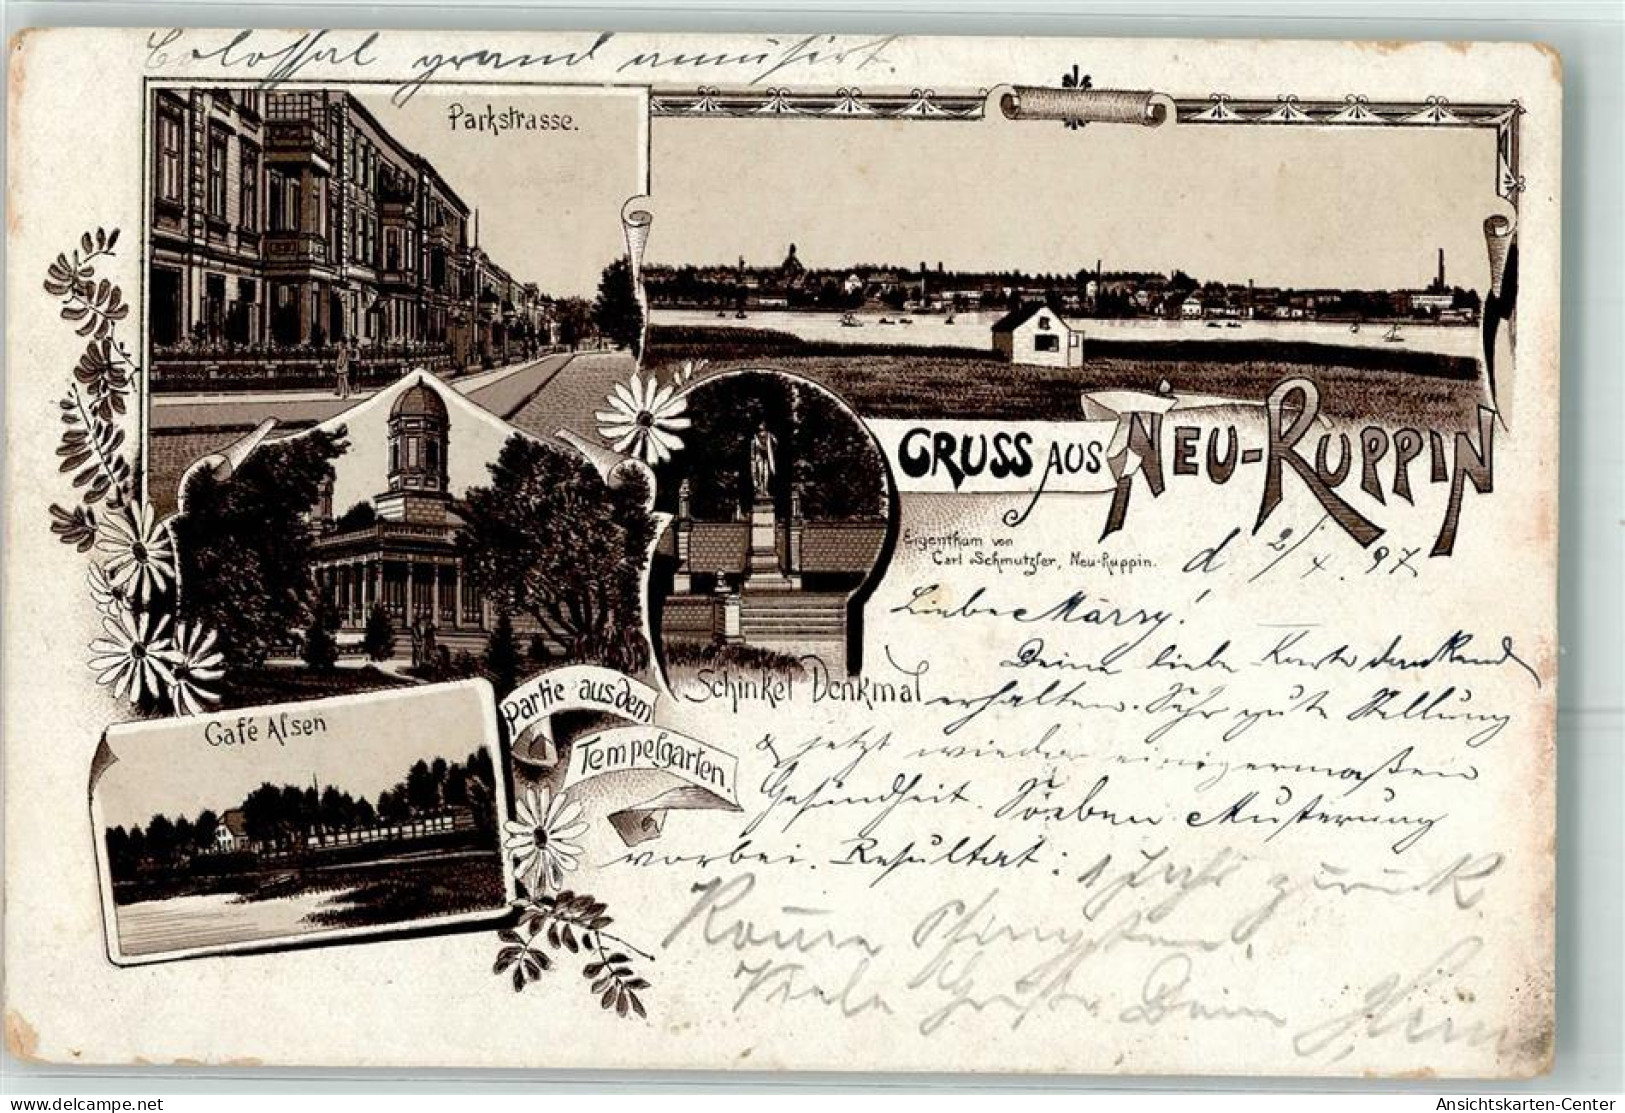 Colossal grand amüsirt.
Parkstrasse.
GRUSS AUS NEU-RUPPIN
Eigenthum von
Carl Schmutzler, Neu-Ruppin.
d. 2/4. 97
Liebe Märry!
Deine liebe Karte dankend
erhalten. Sehr gute Stellung
& jetzt wieder einigermaßen
Gesundheit. Soeben Musterung
vorbei. Resultat: 1 Jahr zurück.
Komme Pfingsten.
Viele Grüße Dein
Schinkel Denkmal
Partie aus dem
Tempelgarten.
Café Alsen
delcampe.net
Ansichtskarten-Center